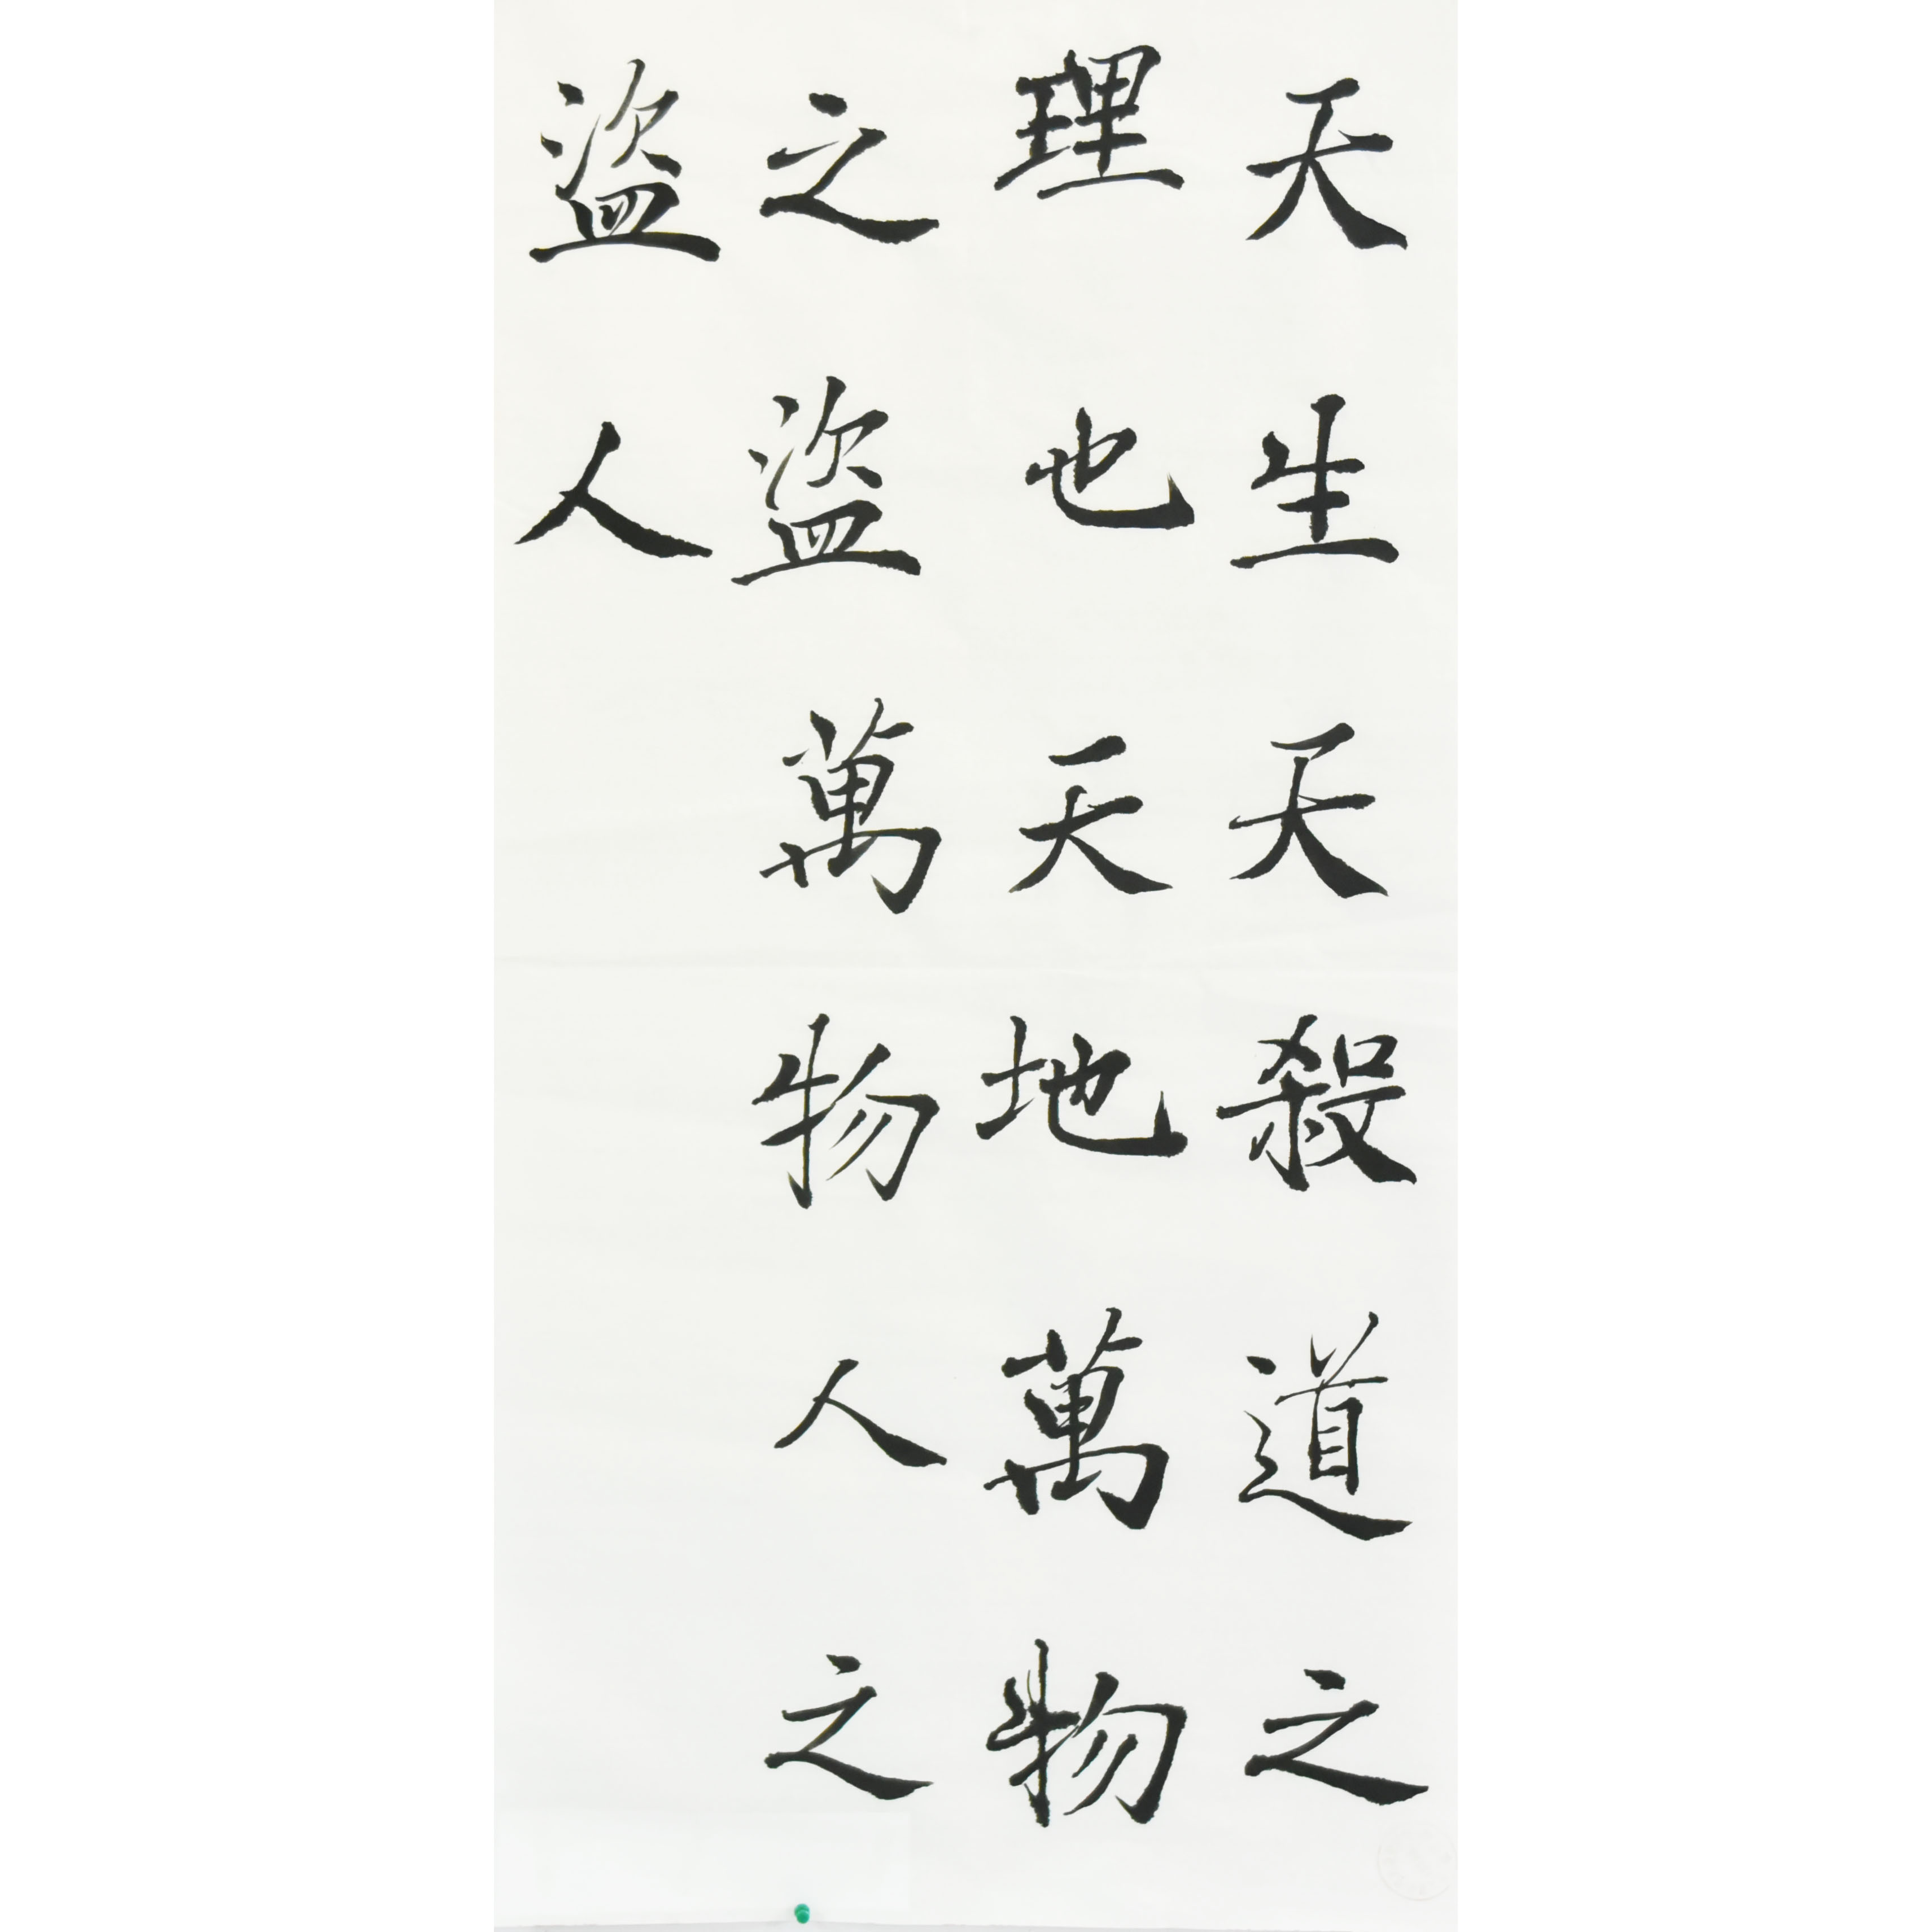 天生天殺道之
理也天地萬物
之盜萬物人之
盜人